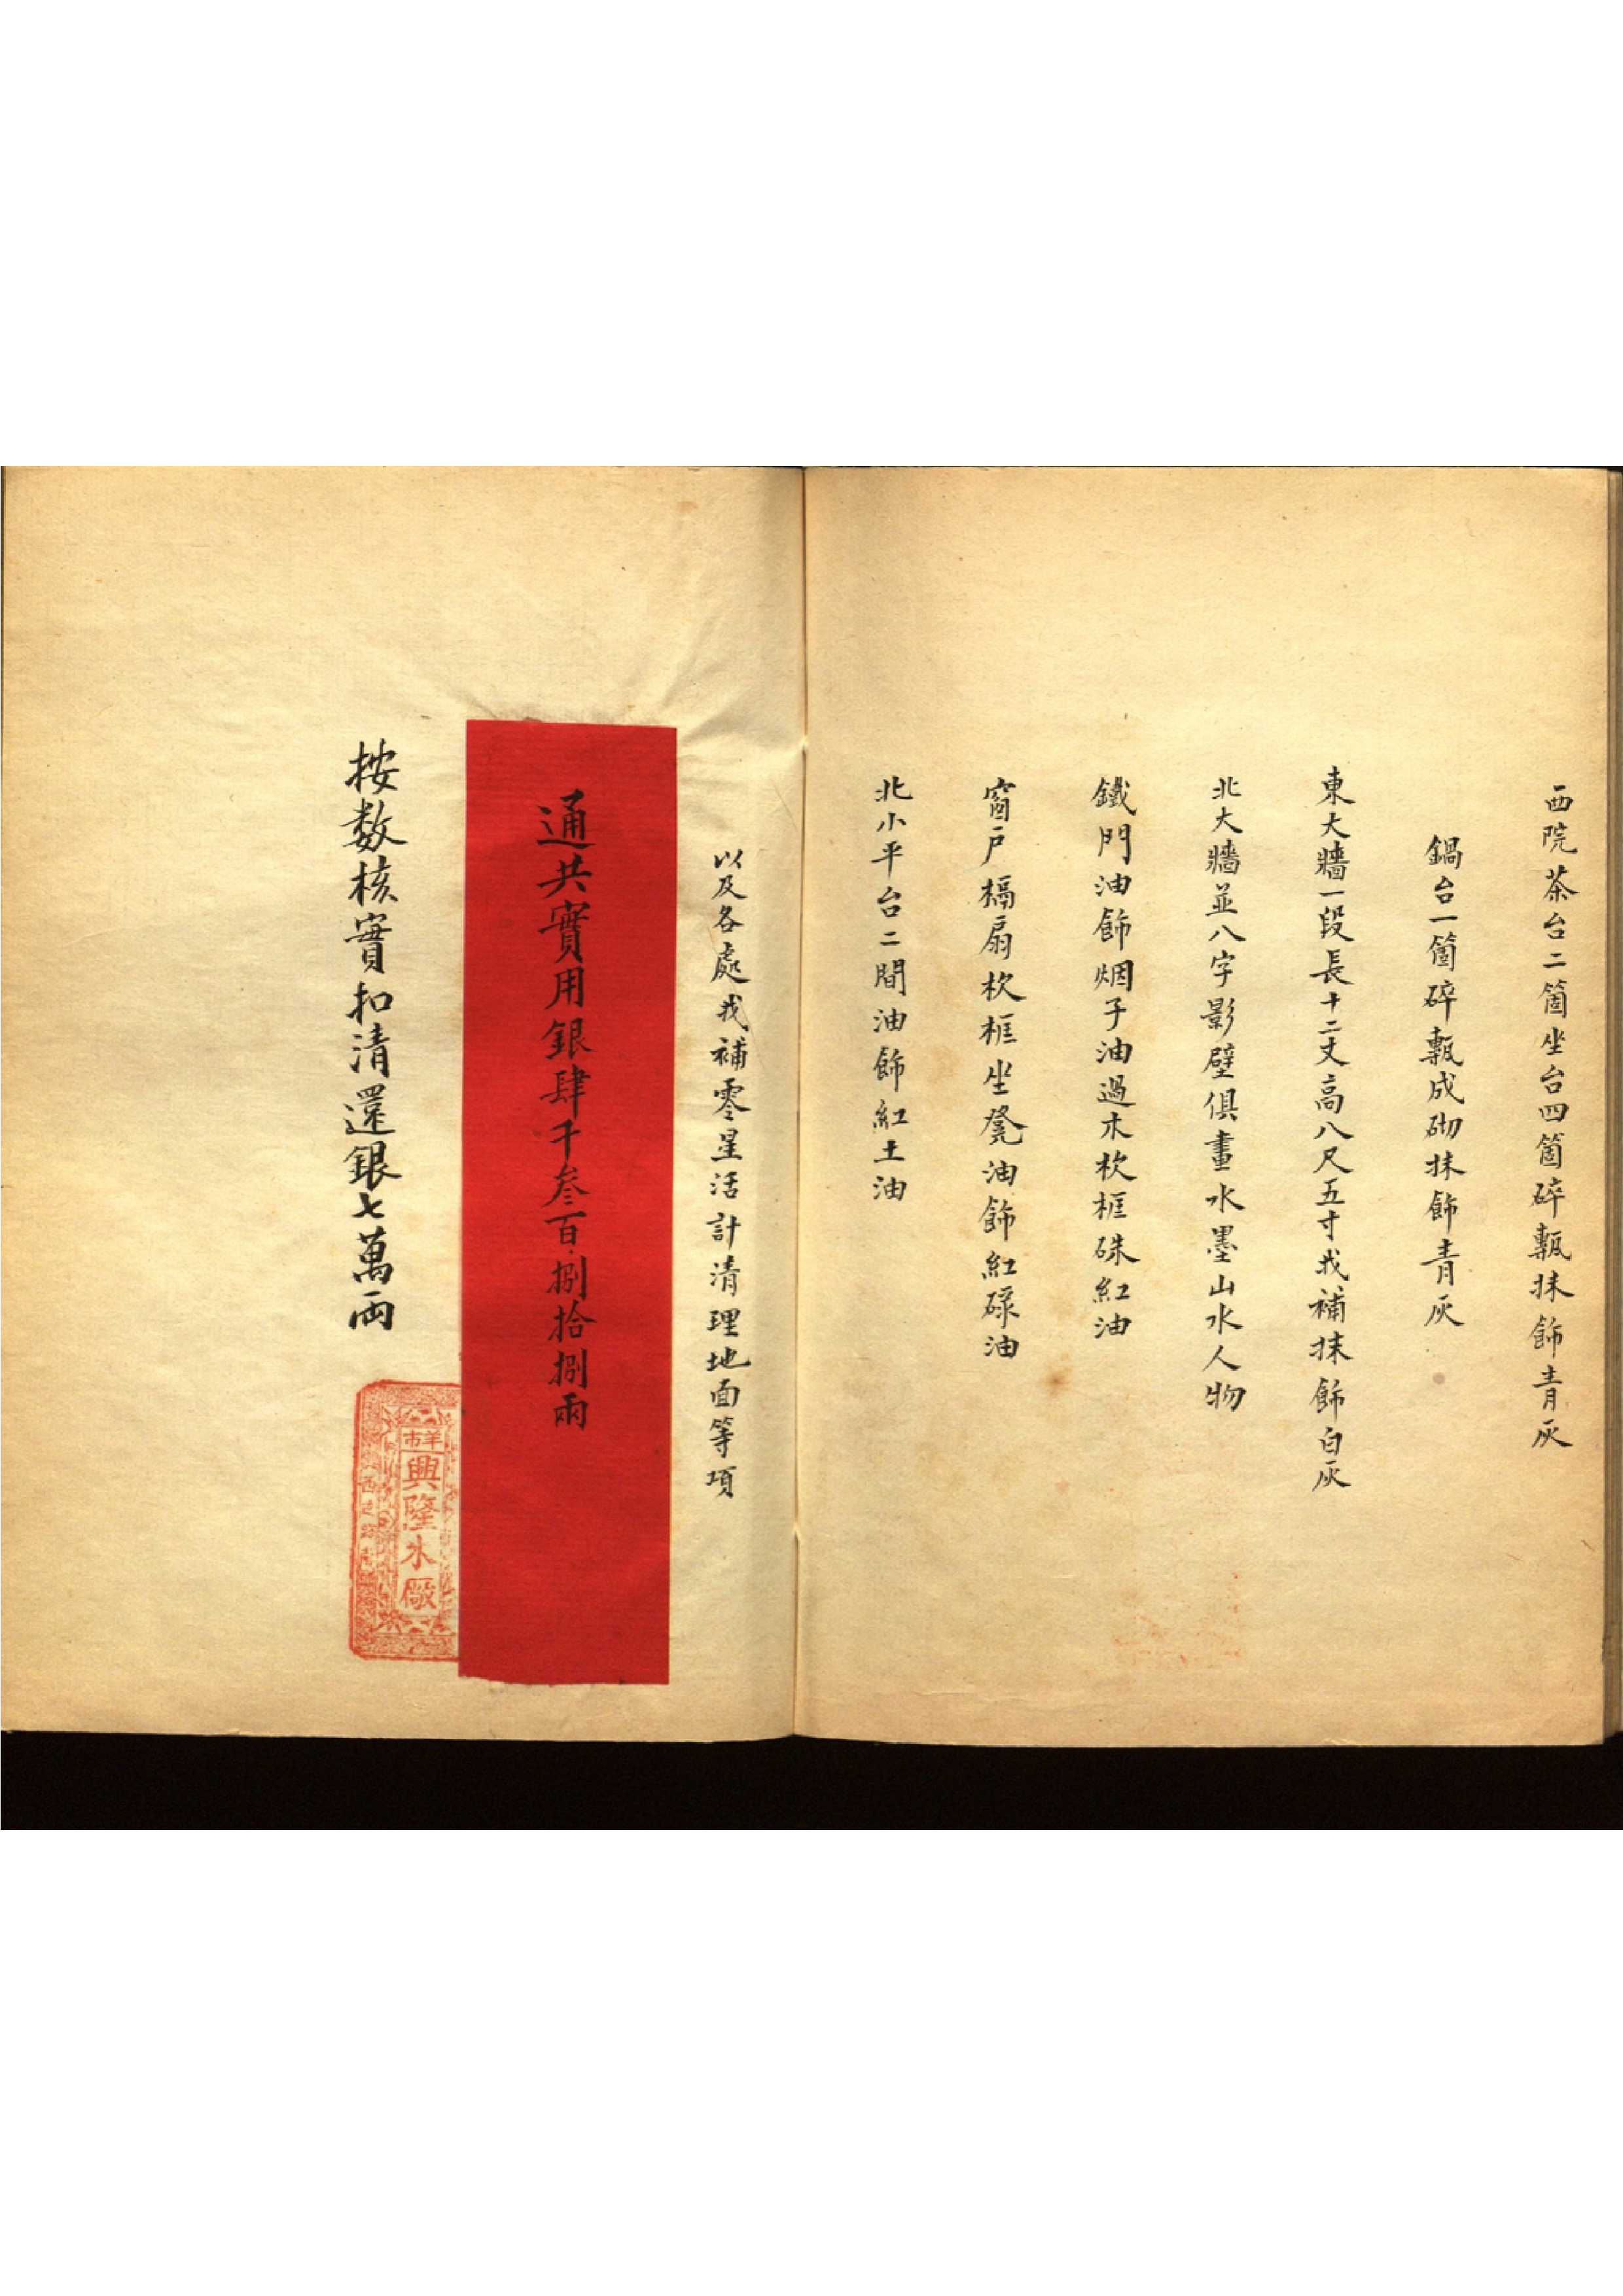 西院茶台二箇坐台四箇碎甎抹飾青灰
鍋台一箇碎甎成砌抹飾青灰
東大牆一段長十二丈高八尺五寸找補抹飾白灰
北大牆並八字影壁俱畫水墨山水人物
鐵門油飾烟子油過木杴框硃紅油
窗戶槅扇杴框坐凳油飾紅碌油
北小平台二間油飾紅土油
以及各處找補零星活計清理地面等項
通共實用銀肆千叁百捌拾捌兩
按数核實扣清還銀七萬両
羊市
興隆木廠